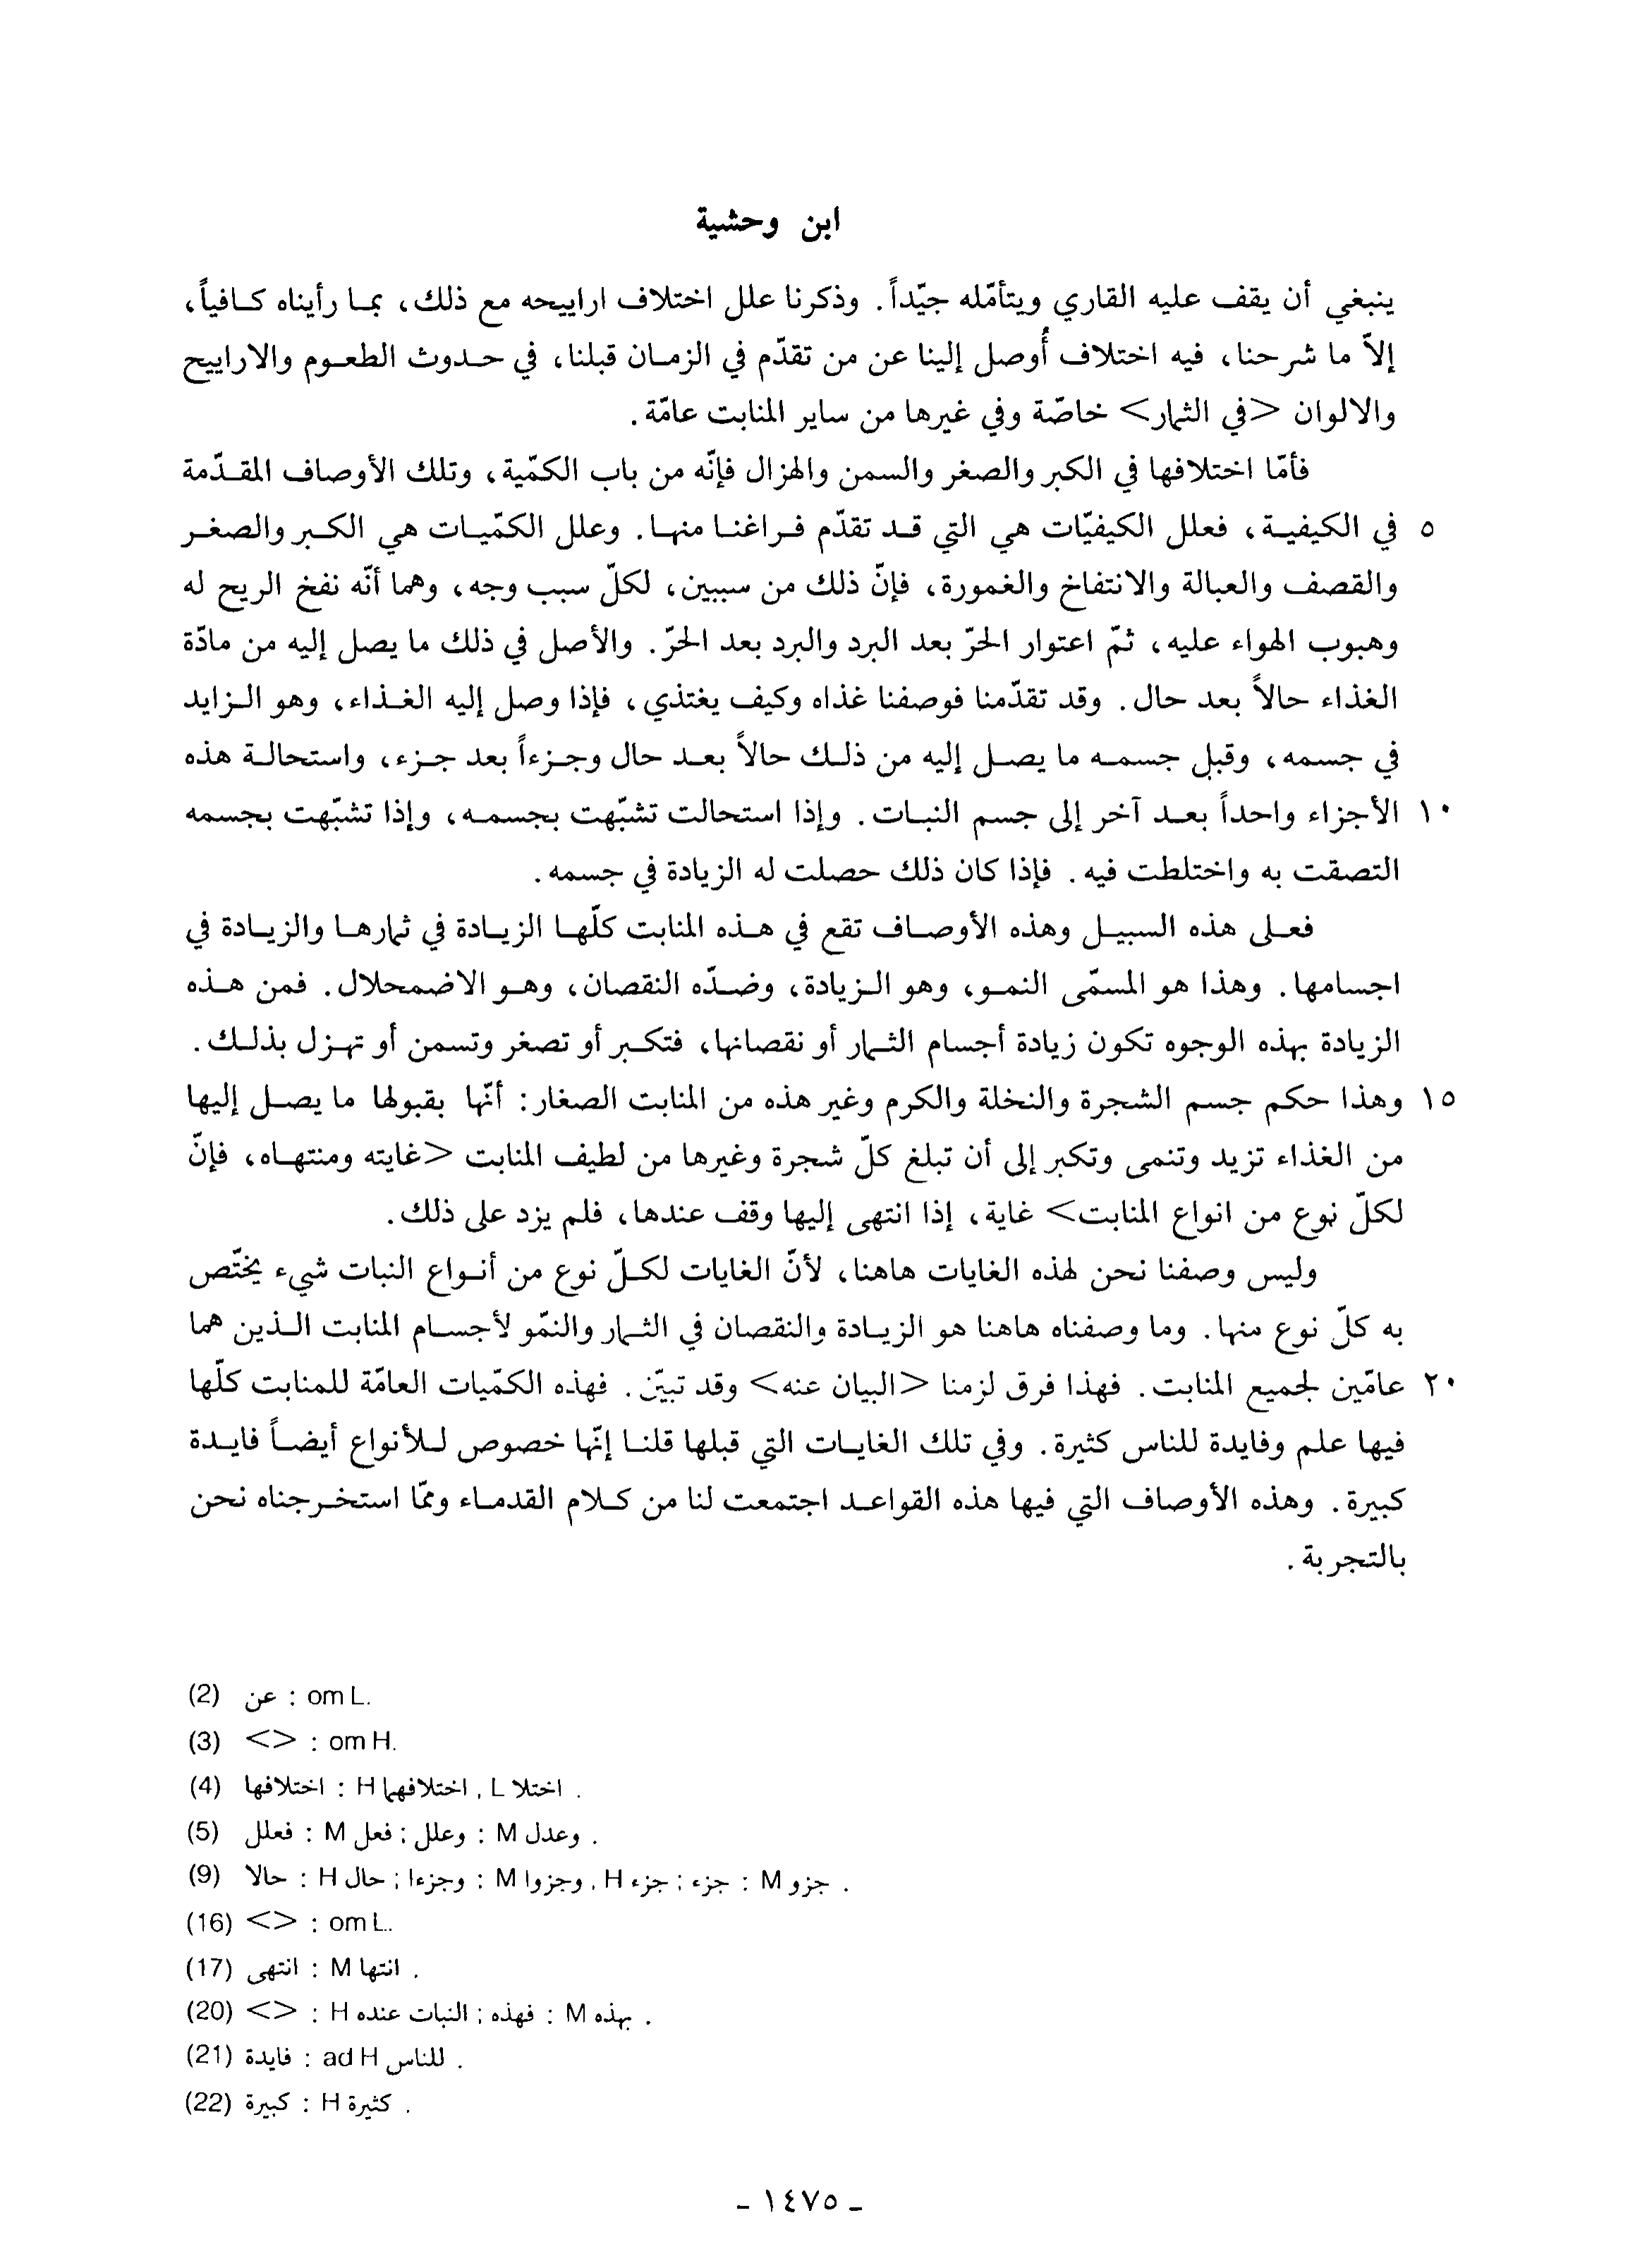 ابن وحشية
ينبغي أن يقف عليه القاري ويتأمّله جيّداً. وذكرنا علل اختلاف اراييحه مع ذلك، بما رأيناه كافياً،
إلاّ ما شرحنا، فيه اختلاف أُوصل إلينا عن من تقدّم في الزمان قبلنا، في حدوث الطعوم والاراييح
والالوان <في الثمار> خاصّة وفي غيرها من ساير المنابت عامّة.
فأمّا اختلافها في الكبر والصغر والسمن والهزال فإنّه من باب الكمّية، وتلك الأوصاف المقدّمة
٥ في الكيفية، فعلل الكيفيّات هي التي قد تقدّم فراغنا منها. وعلل الكمّيات هي الكبر والصغر
والقصف والعبالة والانتفاخ والغمورة، فإنّ ذلك من سببين، لكلّ سبب وجه، وهما أنّه نفخ الريح له
وهبوب الهواء عليه، ثمّ اعتوار الحرّ بعد البرد والبرد بعد الحرّ. والأصل في ذلك ما يصل إليه من مادّة
الغذاء حالاً بعد حال. وقد تقدّمنا فوصفنا غذاه وكيف يغتذي، فإذا وصل إليه الغذاء، وهو الزايد
في جسمه، وقبل جسمه ما يصل إليه من ذلك حالاً بعد حال وجزءاً بعد جزء، واستحالة هذه
١٠ الأجزاء واحداً بعد آخر إلى جسم النبات. وإذا استحالت تشبّهت بجسمه، وإذا تشبّهت بجسمه
التصقت به واختلطت فيه. فإذا كان ذلك حصلت له الزيادة في جسمه.
فعلى هذه السبيل وهذه الأوصاف تقع في هذه المنابت كلّها الزيادة في ثمارها والزيادة في
اجسامها. وهذا هو المسمّى النمو، وهو الزيادة، وضدّه النقصان، وهو الاضمحلال. فمن هذه
الزيادة بهذه الوجوه تكون زيادة أجسام الثمار أو نقصانها، فتكبر أو تصغر وتسمن أو تهزل بذلك.
١٥ وهذا حكم جسم الشجرة والنخلة والكرم وغير هذه من المنابت الصغار: أنّها بقبولها ما يصل إليها
من الغذاء تزيد وتنمى وتكبر إلى أن تبلغ كلّ شجرة وغيرها من لطيف المنابت <غايته ومنتهاه، فإنّ
لكلّ نوع من انواع المنابت> غاية، إذا انتهى إليها وقف عندها، فلم يزد على ذلك.
وليس وصفنا نحن لهذه الغايات هاهنا، لأنّ الغايات لكلّ نوع من أنواع النبات شيء يختّص
به كلّ نوع منها. وما وصفناه هاهنا هو الزيادة والنقصان في الثمار والنمّو لأجسام المنابت الذين هما
٢٠ عامّين لجميع المنابت. فهذا فرق لزمنا <البيان عنه> وقد تبيّن. فهذه الكمّيات العامّة للمنابت كلّها
فيها علم وفايدة للناس كثيرة. وفي تلك الغايات التي قبلها قلنا إنّها خصوص للأنواع أيضاً فايدة
كبيرة. وهذه الأوصاف التي فيها هذه القواعد اجتمعت لنا من كلام القدماء وممّا استخرجناه نحن
بالتجربة.
(2) عن : om L.
(3) <> : om H.
(4) اختلافها : H اختلافهما , L اختلا .
(5) فعلل : M فعل ; وعلل : M وعدل .
(9) حالا : H حال ; وجزءا : M وجزوا , H جزء ; جزء : M جزو .
(16) <> : om L..
(17) انتهى : M انتها .
(20) <> : H النبات عنده ; فهذه : M بهذه .
(21) فايدة : ad H للناس .
(22) كبيرة : H كثيرة .
- ١٤٧٥ -